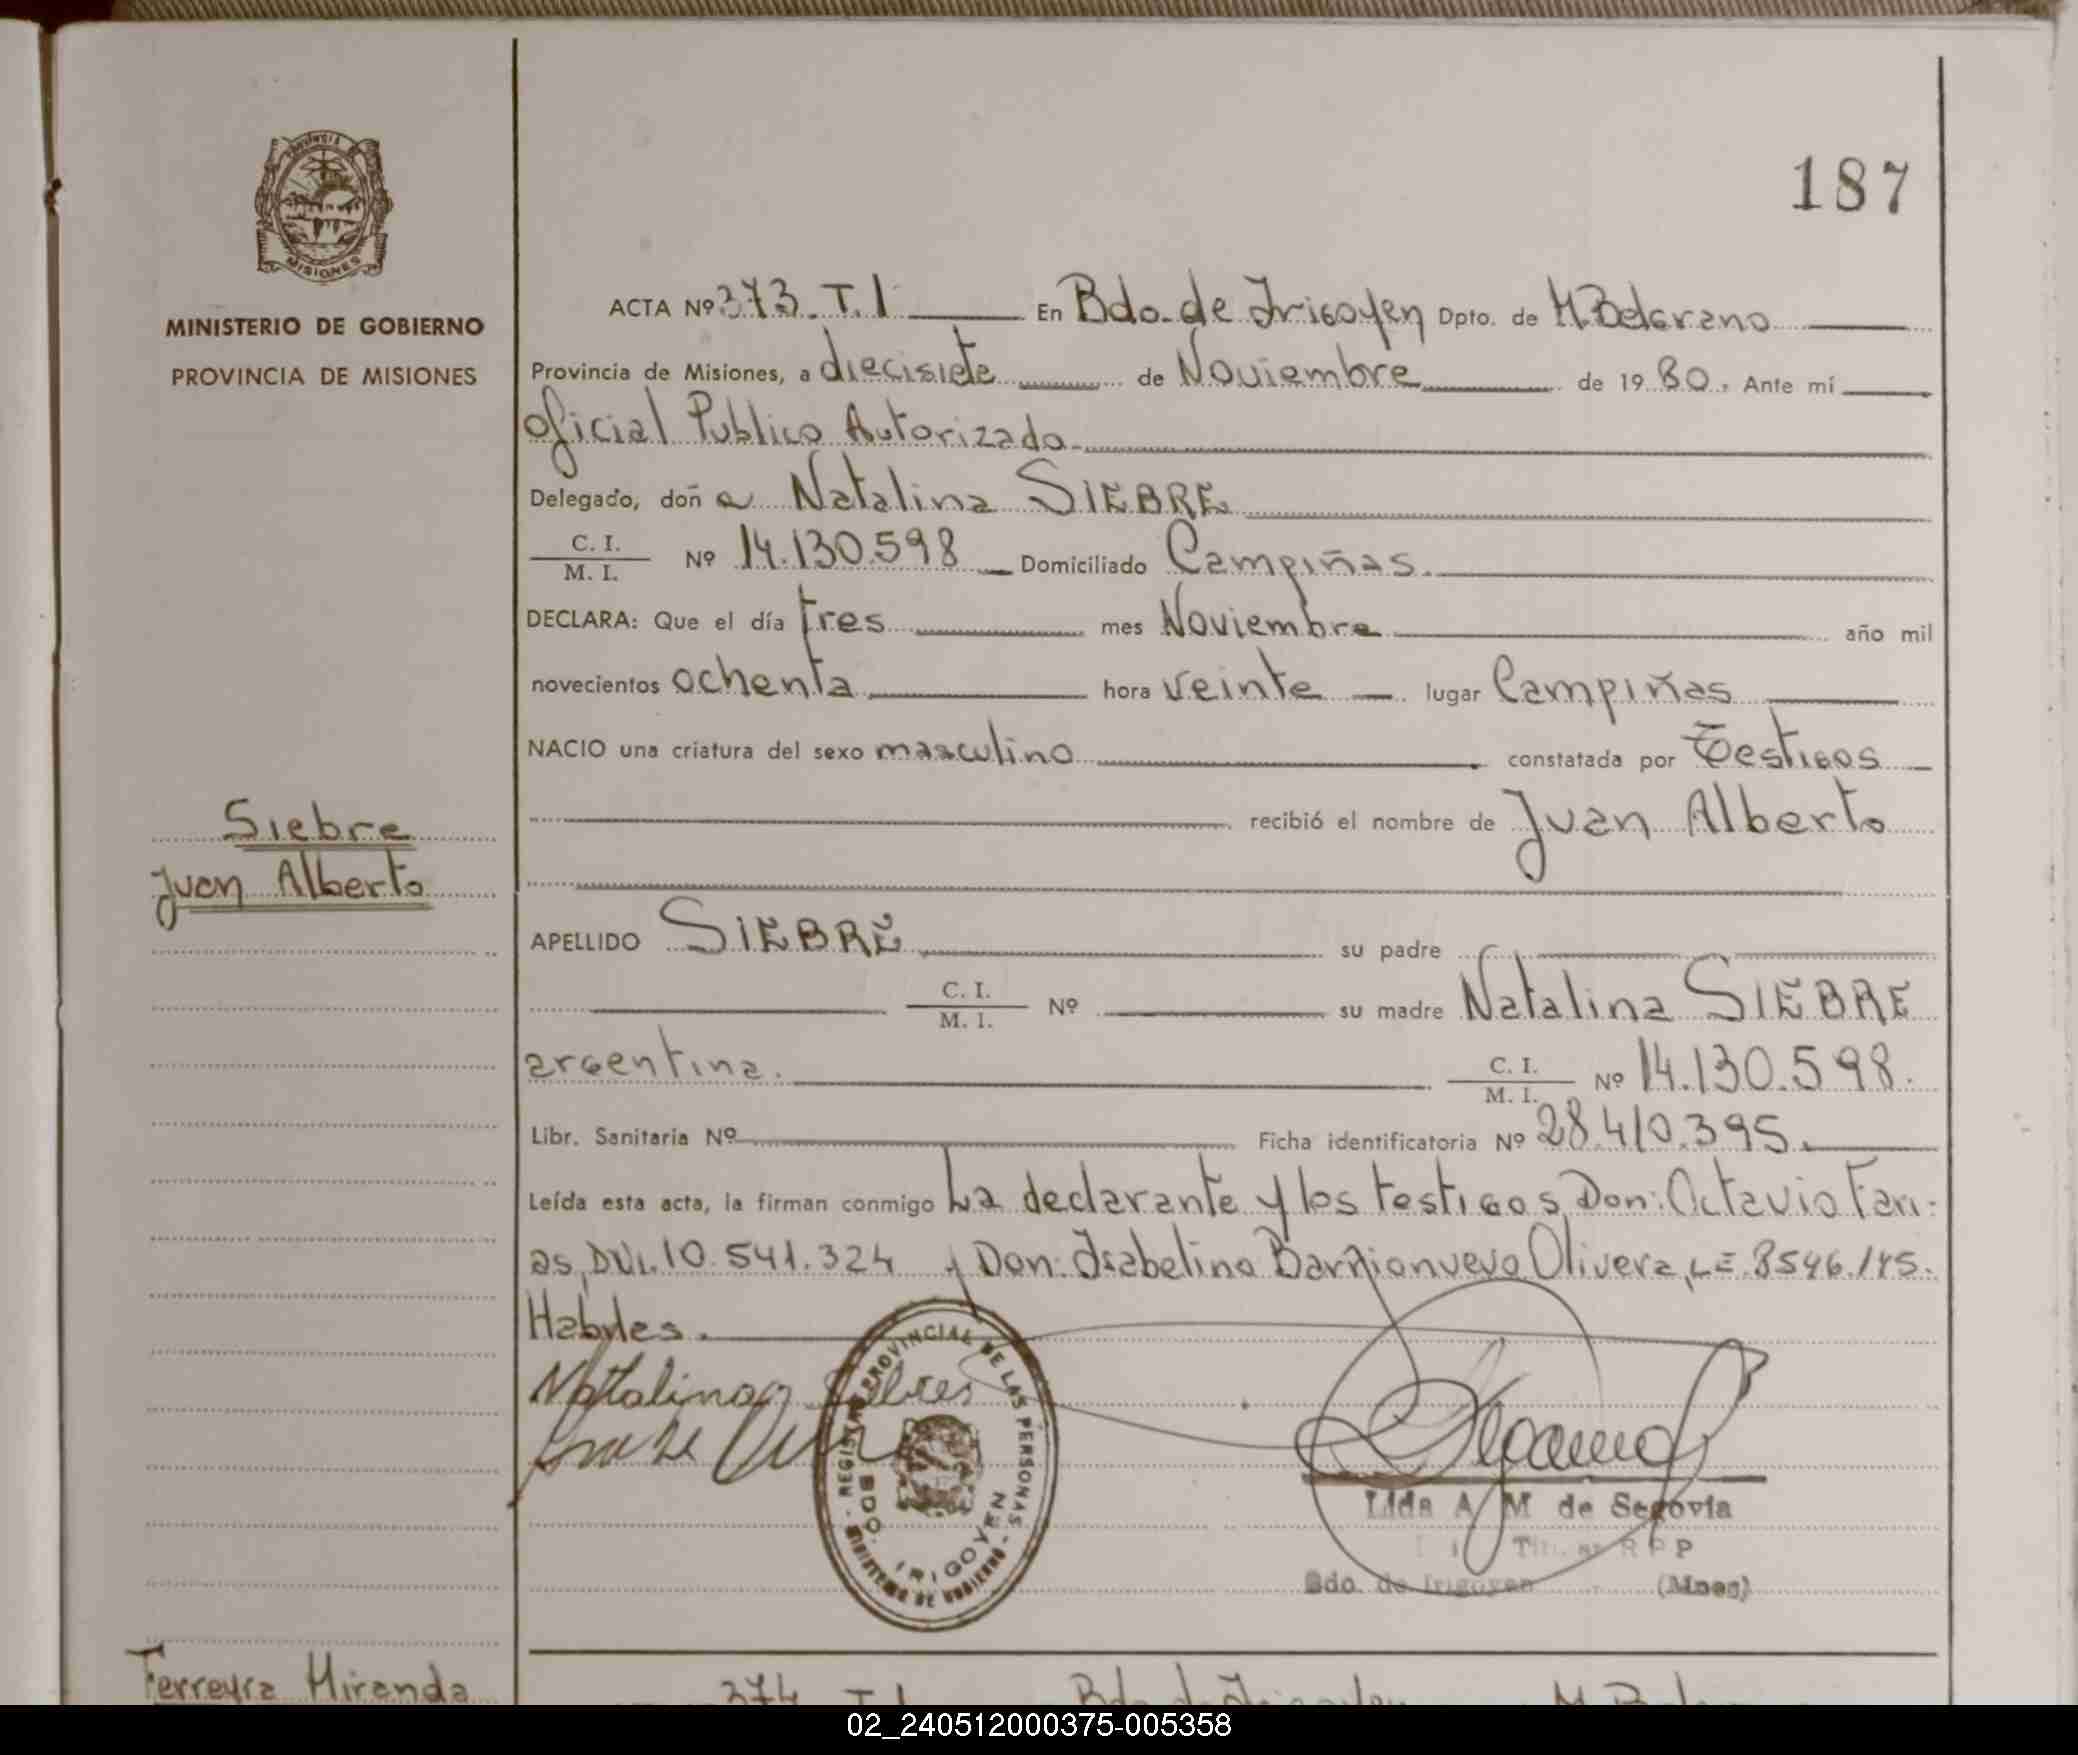 187
PROVINCIA
MISIONES
MINISTERIO DE GOBIERNO
PROVINCIA DE MISIONES
ACTA Nº 373. T. I En Bdo. de Irigoyen Dpto. de M. Belgrano
Provincia de Misiones, a diecisiete de Noviembre de 19 80. Ante mí
Oficial Publico Autorizado.
Delegado, doñ a Natalina SIEBRE
C. I. / M. I. Nº 14.130.598 Domiciliado Campiñas.
DECLARA: Que el día tres mes Noviembre año mil
novecientos ochenta hora veinte lugar Campiñas
NACIO una criatura del sexo masculino constatada por Testigos
recibió el nombre de Juan Alberto
Siebre
Juan Alberto
APELLIDO SIEBRE su padre
C. I. / M. I. Nº su madre Natalina SIEBRE
argentina. C. I. / M. I. Nº 14.130.598.
Libr. Sanitaria Nº Ficha identificatoria Nº 28.410.395.
Leída esta acta, la firman conmigo La declarante y los testigos Don: Octavio Fari-
as, DNI. 10.541.324 y Don: Isabelino Barrionuevo Olivera, LE. 8546.145.
Habiles.
Natalina
REGISTRO PROVINCIAL DE LAS PERSONAS
BDO. IRIGOYEN
MINISTERIO DE GOBIERNO
Lida A M de Segovia
R P P
Bdo. de Irigoyen (Mnes)
Ferreyra Miranda
374 T. I Bdo. de Irigoyen M. Belgrano
02_240512000375-005358